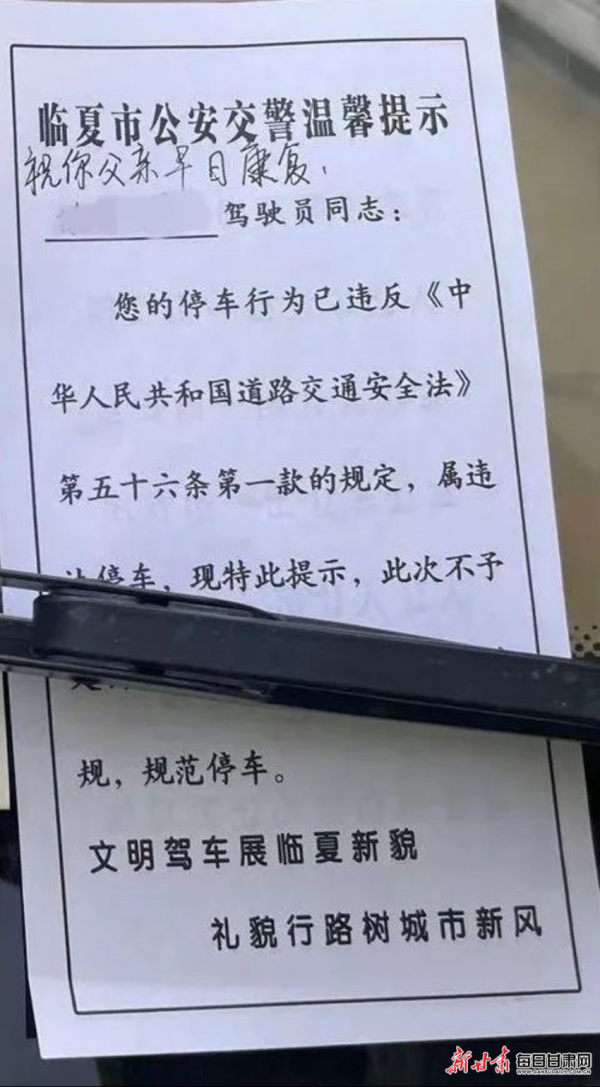 临夏市公安交警温馨提示
祝你父亲早日康复，
驾驶员同志：
您的停车行为已违反《中
华人民共和国道路交通安全法》
第五十六条第一款的规定，属违
停车，现特此提示，此次不予
规，规范停车。
文明驾车展临夏新貌
礼貌行路树城市新风
新甘肃 每日甘肃网
WWW.GANSUDAILY.COM.CN